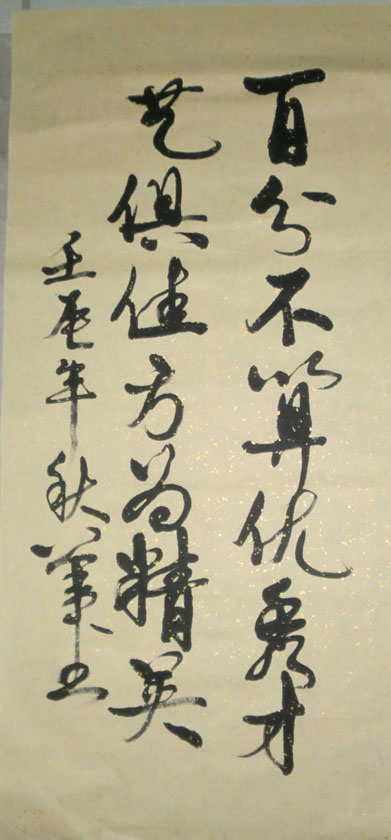 百分不算优秀才
艺俱佳方为精英
壬辰年秋